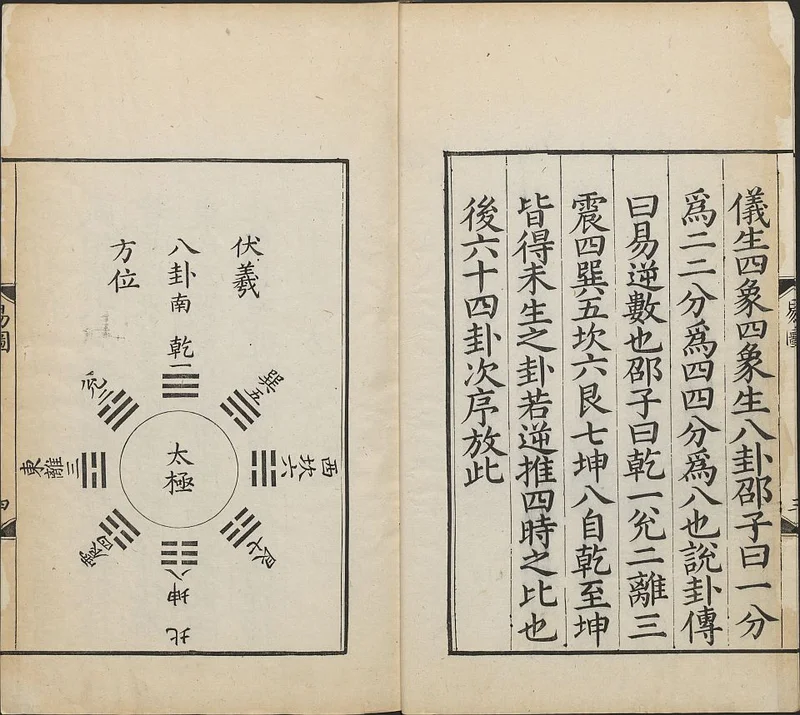 儀生四象四象生八卦邵子曰一分
爲二二分爲四四分爲八也說卦傳
曰易逆數也邵子曰乾一兊二離三
震四巽五坎六艮七坤八自乾至坤
皆得未生之卦若逆推四時之比也
後六十四卦次序放此
易圖
伏羲
八卦
方位
南
乾一
兊二
東
離三
震四
北
坤八
艮七
西
坎六
巽五
太極
易圖
四